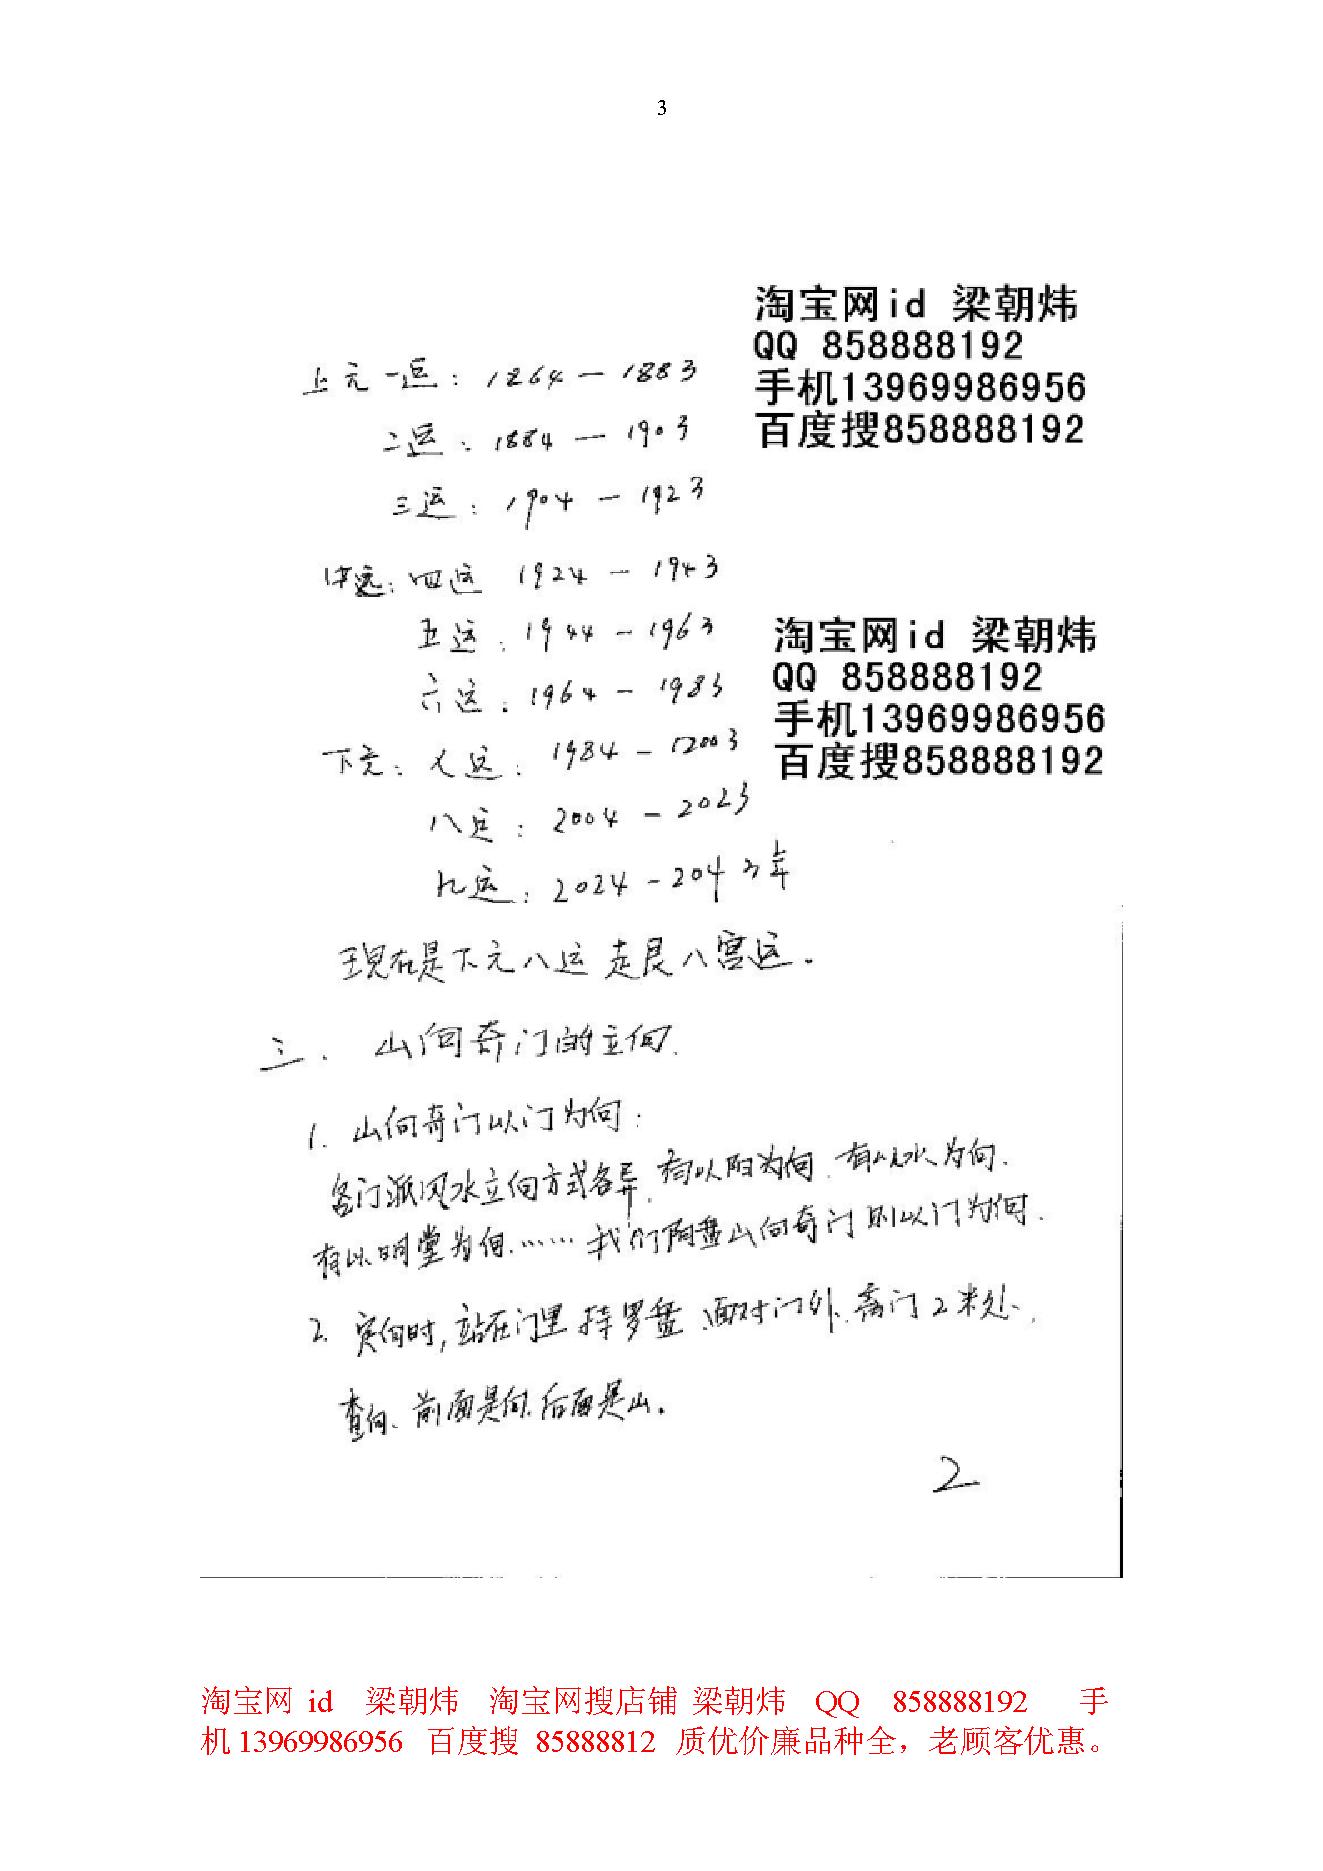 3
淘宝网id 梁朝炜
QQ 858888192
手机13969986956
百度搜858888192
上元一运：1864－1883
二运：1884－1903
三运：1904－1923
中运：四运 1924－1943
五运：1944－1963
六运：1964－1983
淘宝网id 梁朝炜
QQ 858888192
手机13969986956
百度搜858888192
下元：七运：1984－2003
八运：2004－2023
九运：2024－2043年
现在是下元八运 走艮八宫运．
三．山向奇门的立向．
1．山向奇门以门为向：
各门派风水立向方式各异，有以阳为向．有以水为向．
有以明堂为向……我们阴盘山向奇门则以门为向．
2．定向时，站在门里 持罗盘、面对门外．离门2米处．
查向、前面是向．后面是山．
2
淘宝网 id 梁朝炜 淘宝网搜店铺 梁朝炜 QQ 858888192 手
机 13969986956 百度搜 85888812 质优价廉品种全，老顾客优惠。